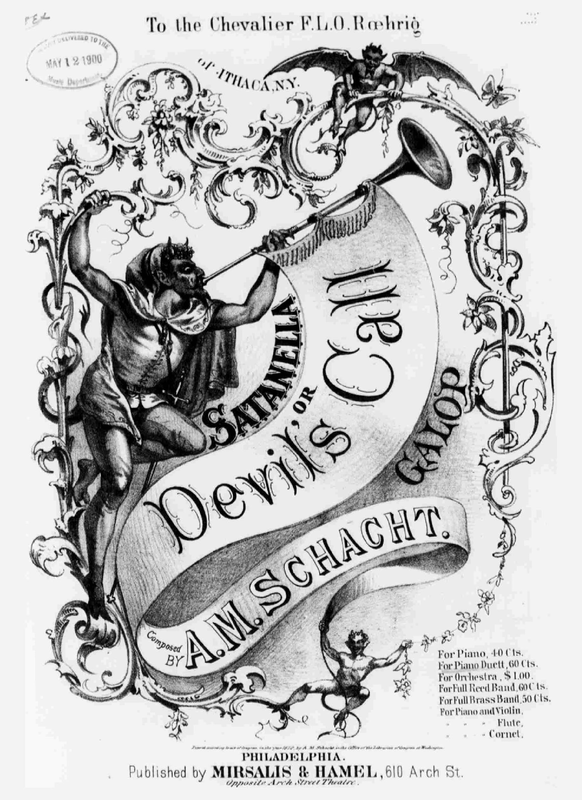 To the Chevalier F.L.O. Rœhrig
OF ITHACA, N.Y.
MAY 12 1900
SATANELLA
OR
Devil's Call
GALOP
Composed
BY
A.M. SCHACHT.
For Piano, 40 Cts.
For Piano Duett, 60 Cts.
For Orchestra, $1.00.
For Full Reed Band, 60 Cts.
For Full Brass Band, 50 Cts.
For Piano and Violin,
" " Flute,
" " Cornet.
PHILADELPHIA.
Published by MIRSALIS & HAMEL, 610 Arch St.
Opposite Arch Street Theatre.